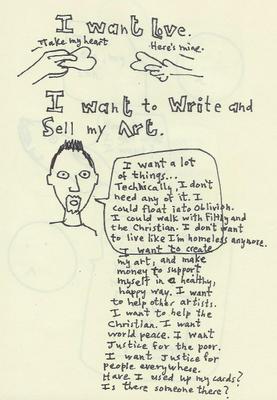 I want Love.
Take my heart
Here's mine.
I want to Write and
Sell my Art.
I want a lot
of things...
Technically, I don't
need any of it. I
could float into Oblivion.
I could walk with Filthy and
the Christian. I don't want
to live like I'm homeless anymore.
I want to create
my art, and make
money to support
myself in a healthy,
happy way. I want
to help other artists.
I want to help the
Christian. I want
world peace. I want
Justice for the poor.
I want Justice for
people everywhere.
Have I used up my cards?
Is there someone there?